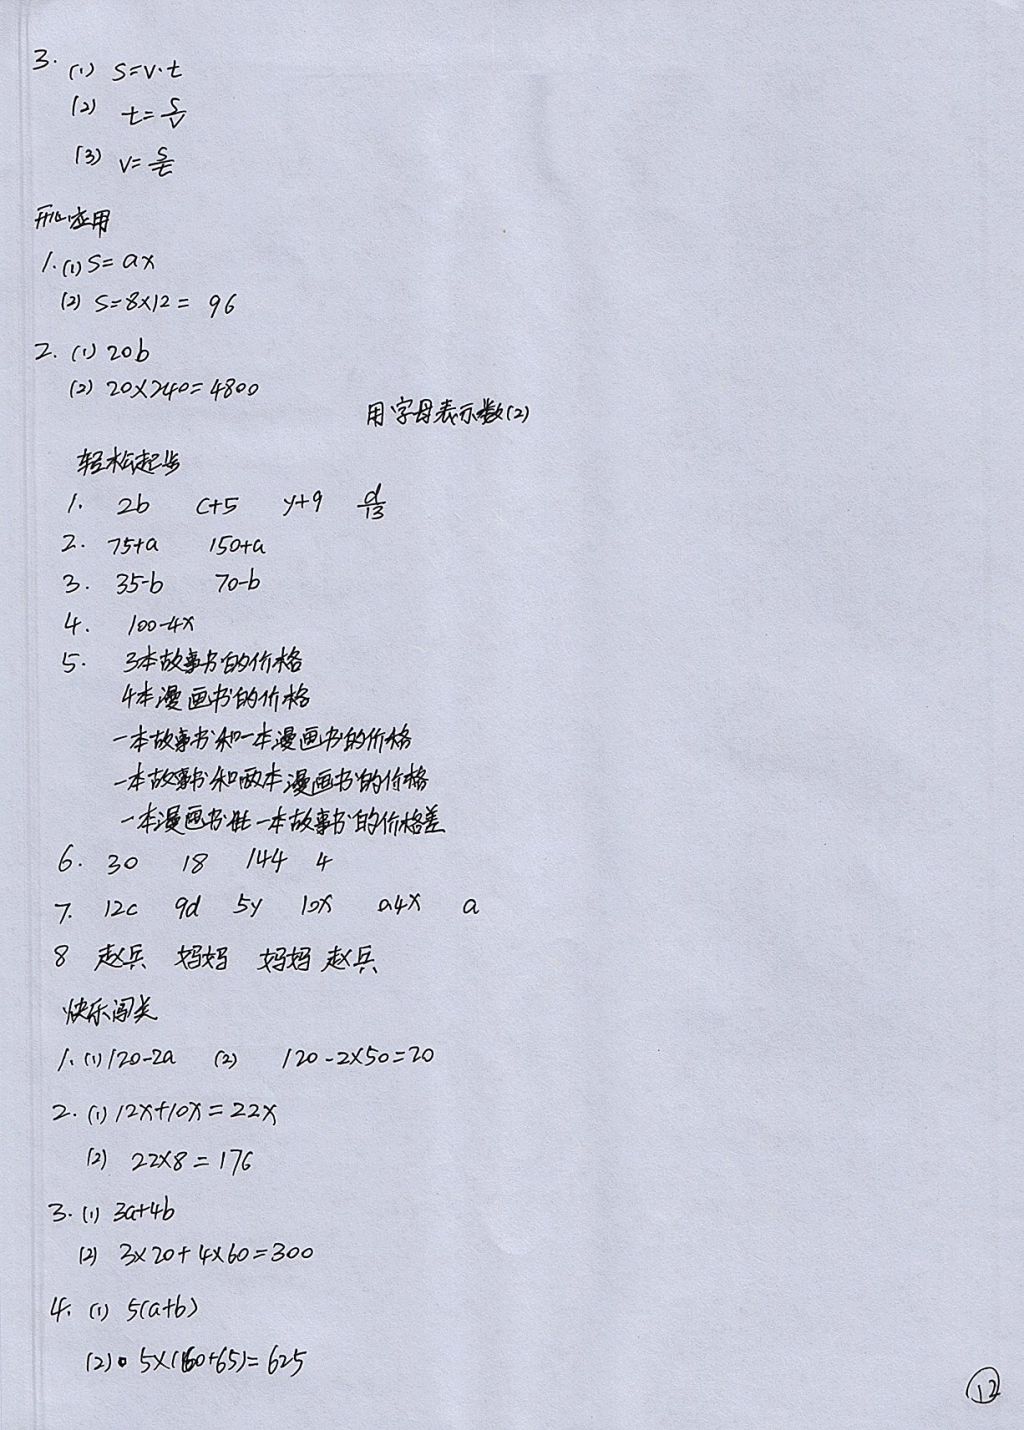 3. (1) S=v·t
(2) t=s/v
(3) v=s/t
开心应用
1. (1) S=ax
(2) S=8×12=96
2. (1) 20b
(2) 20×240=4800
用字母表示数(2)
轻松起步
1. 2b c+5 y+9 d/13
2. 75+a 150+a
3. 35-b 70-b
4. 100-4x
5. 3本故事书的价格
4本漫画书的价格
一本故事书和一本漫画书的价格
一本故事书和两本漫画书的价格
一本漫画书比一本故事书的价格差
6. 30 18 144 4
7. 12c 9d 5y 10x a4x a
8 赵兵 妈妈 妈妈 赵兵
快乐闯关
1. (1) 120-2a (2) 120-2×50=20
2. (1) 12x+10x=22x
(2) 22×8=176
3. (1) 3a+4b
(2) 3×20+4×60=300
4. (1) 5(a+b)
(2) 5×(60+65)=625
12